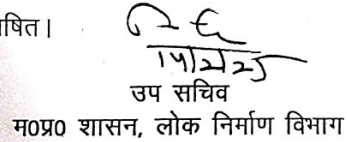 षित।
उप सचिव
म0प्र0 शासन, लोक निर्माण विभाग